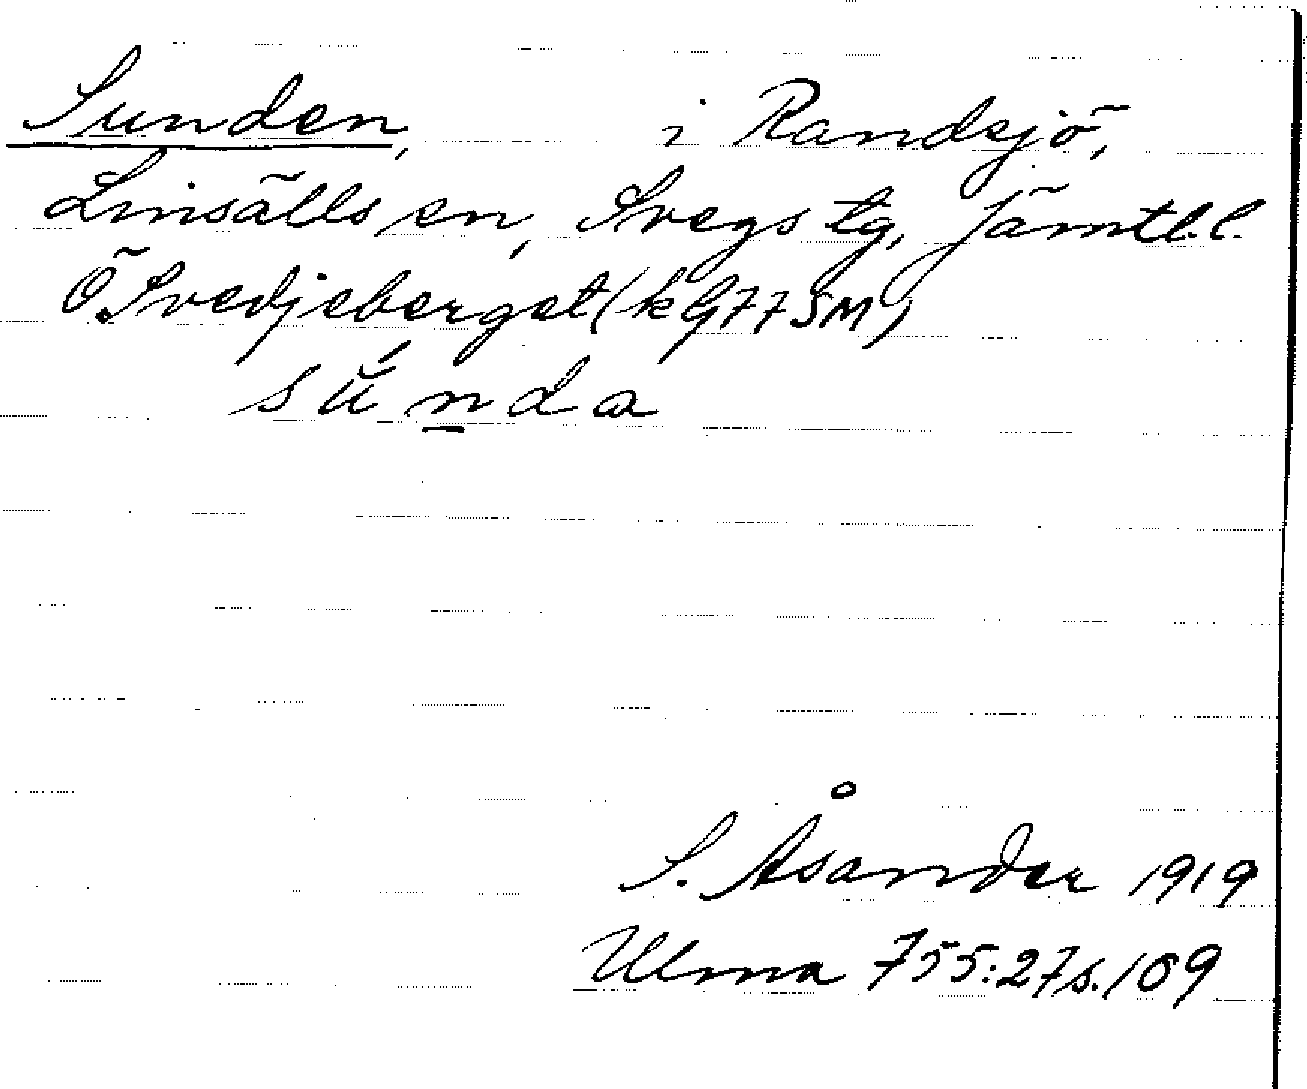 Sunden, i Randsjö,
Linsälls sn, Svegs tg, Jämtl.l.
Ö. Svedjeberget (kG77SM)
súnda
S. Åsander 1919
Ulma 755:27 s. 109